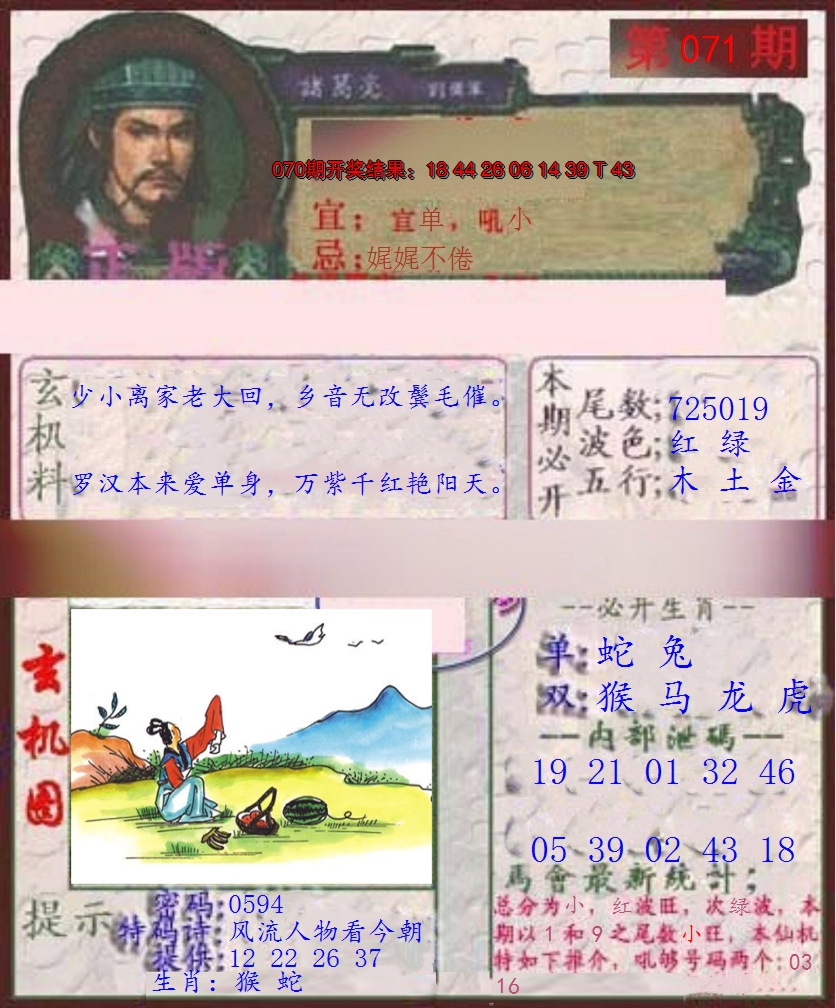 第 071 期
諸葛亮
070期开奖结果：18 44 26 06 14 39 T 43
宜：宜单，吼小
忌：娓娓不倦
正版
玄机料
少小离家老大回，乡音无改鬓毛催。
罗汉本来爱单身，万紫千红艳阳天。
本期必开
尾数：725019
波色：红 绿
五行：木 土 金
玄机图
--必开生肖--
单：蛇 兔
双：猴 马 龙 虎
——内部泄碼——
19 21 01 32 46
05 39 02 43 18
馬會最新統計；
总分为小，红波旺，次绿波，本
期以1和9之尾数小旺，本仙机
特如下推介，吼够号码两个:03
16
提示
密码:0594
特码诗:风流人物看今朝
提供:12 22 26 37
生肖：猴 蛇